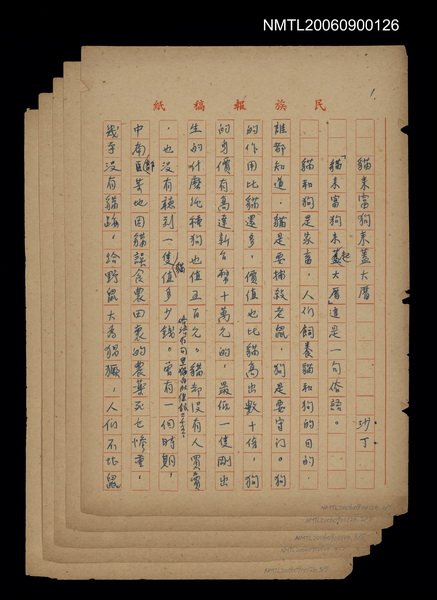 NMTL20060900126
民族報稿紙
1.
貓來富狗來蓋大厝
沙丁
「貓來富狗來起大厝」這是一句俗語。
貓和狗是家畜,人們飼養貓和狗的目的,
誰都知道,貓是要捕殺老鼠,狗是要守門。狗
的作用比貓還多,價值也比貓高出數十倍,狗
的身價有高達新台幣十萬元的,最低一隻剛出
生的什麼純種狗也值五百元。貓卻沒有人買賣
,也沒有聽到一隻貓值多少錢。曾有一個時期,
中南部(部)某地因貓誤食農田裏的農藥死亡慘重,
幾乎沒有貓跡,給野鼠大為猖獗,人們不堪鼠
NMTL20060900126 2/5
NMTL20060900126 3/5
NMTL20060900126 4/5
NMTL20060900126 5/5